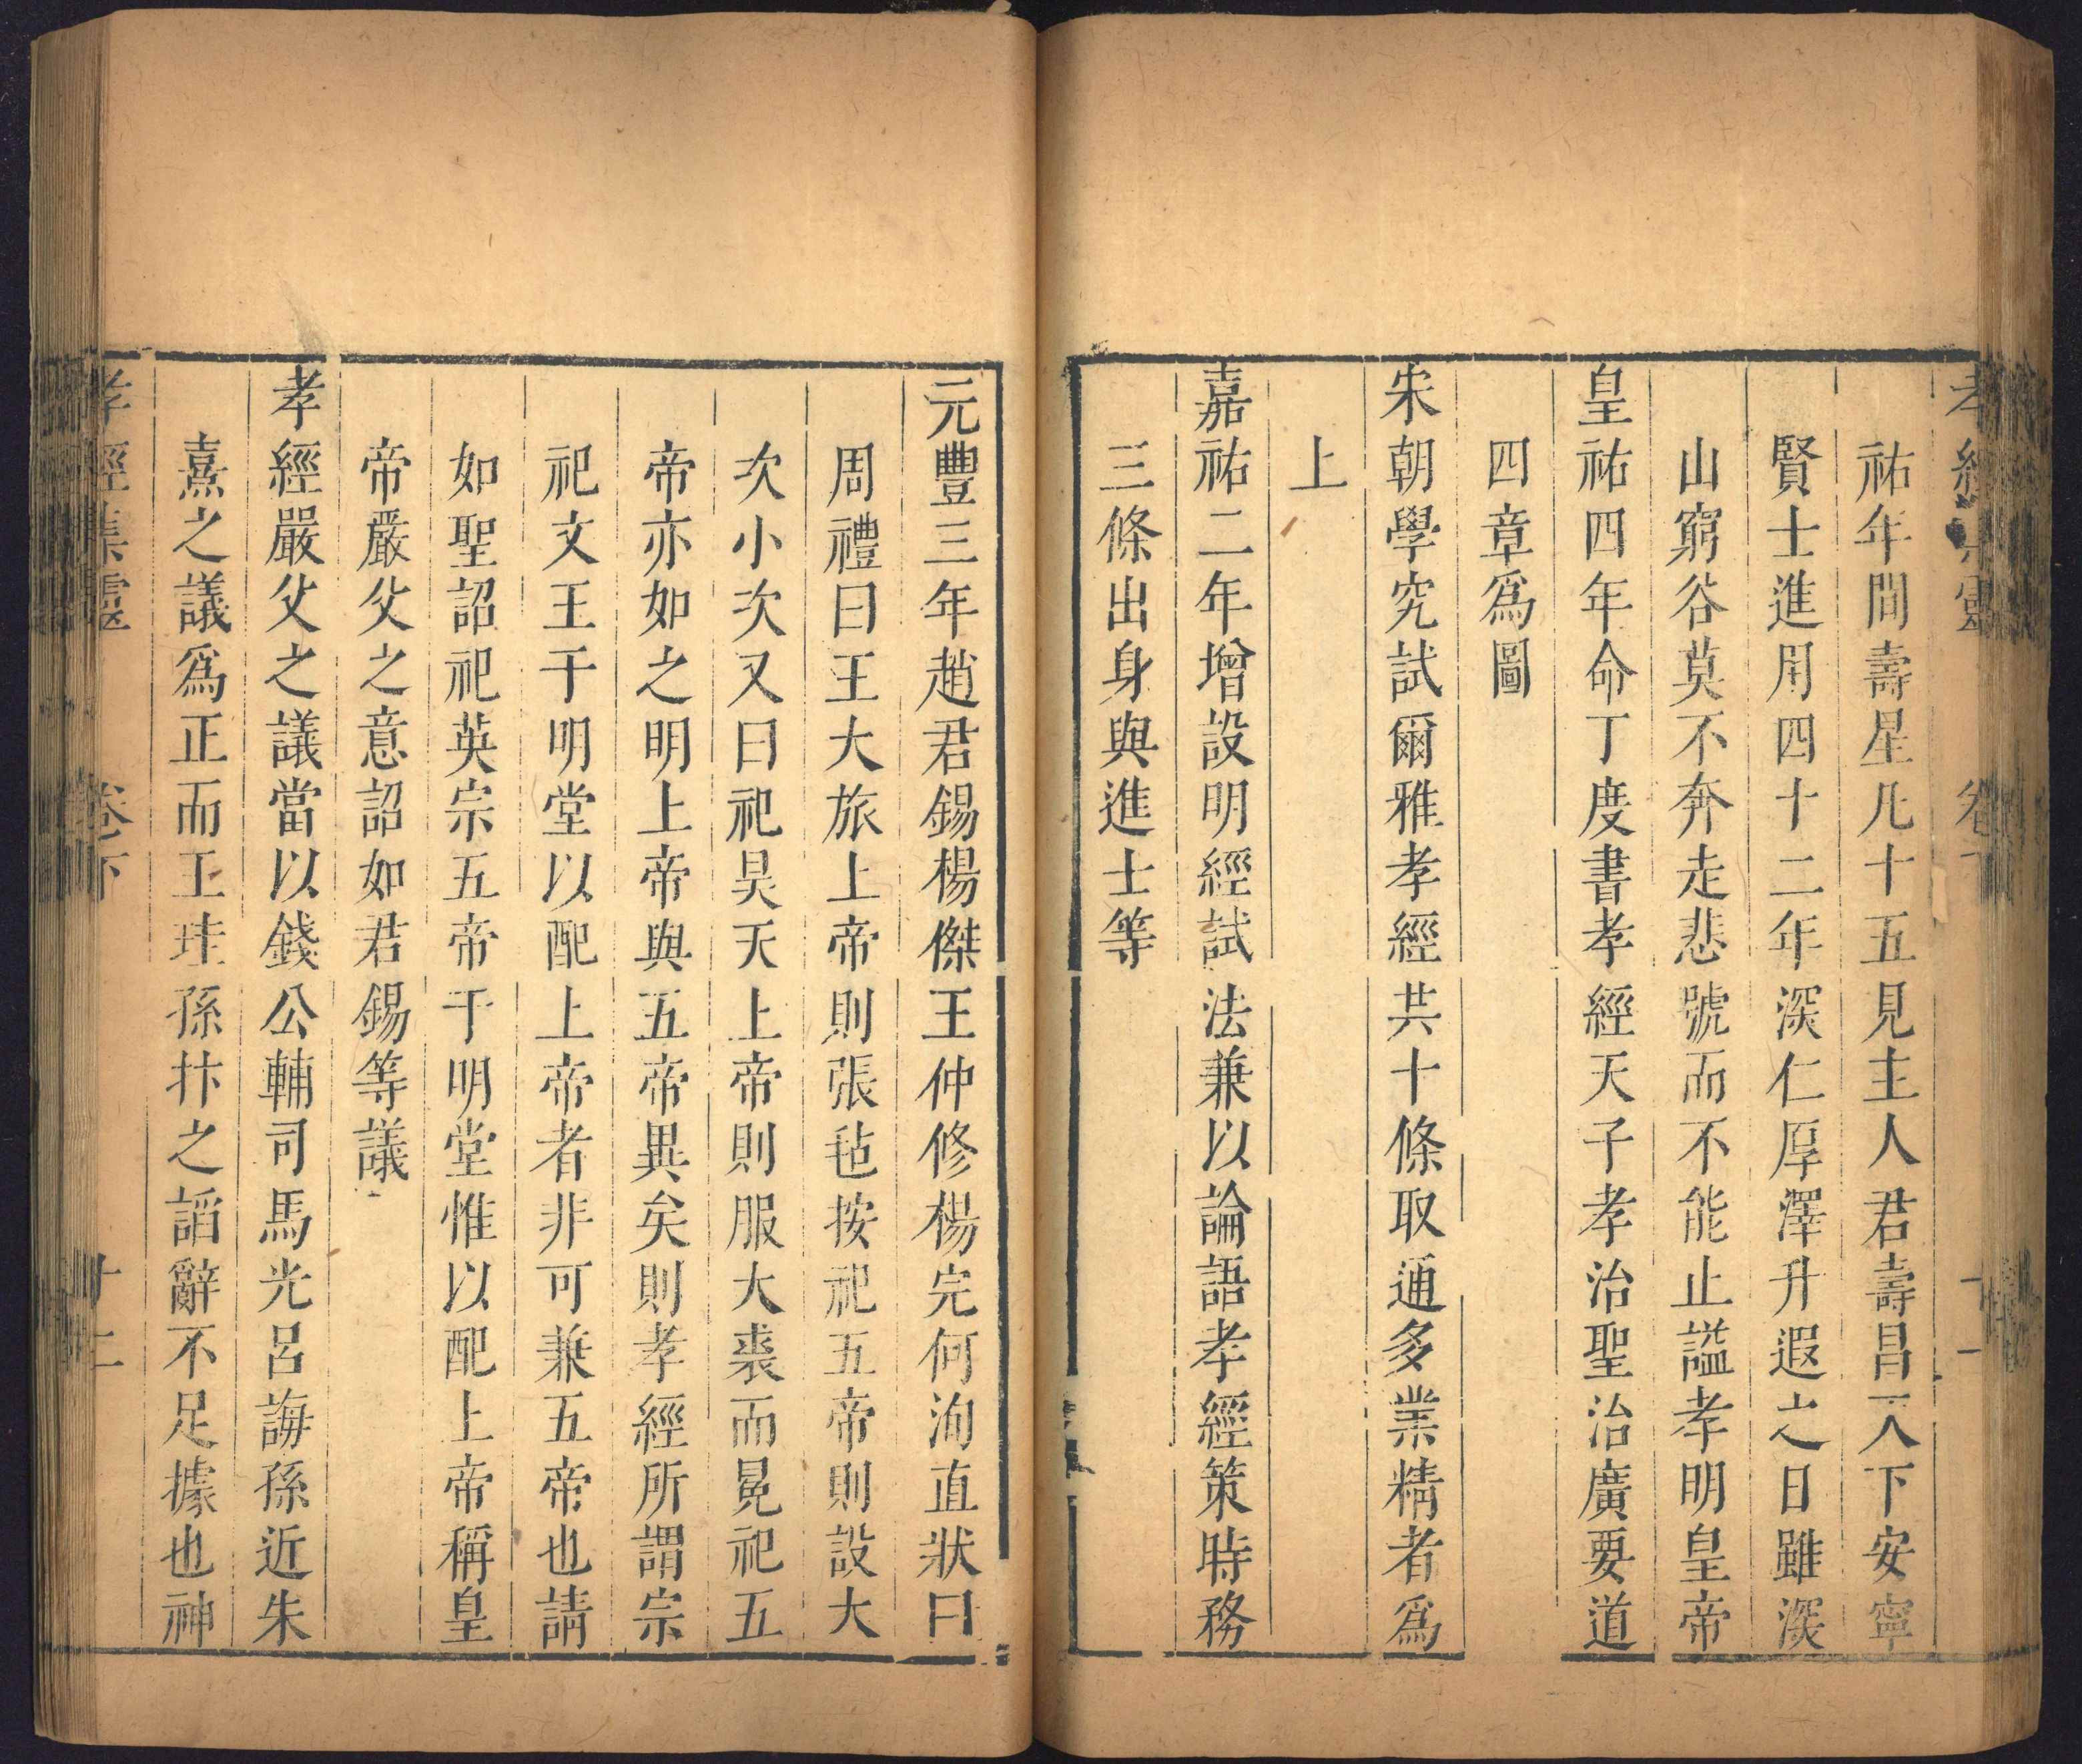 孝經集靈 卷下 十一
祐年間壽星凡十五見主人君壽昌天下安寧
賢士進用四十二年深仁厚澤升遐之日雖深
山窮谷莫不奔走悲號而不能止謚孝明皇帝
皇祐四年命丁度書孝經天子孝治聖治廣要道
四章爲圖
宋朝學究試爾雅孝經共十條取通多業精者爲
上
嘉祐二年增設明經試法兼以論語孝經策時務
三條出身與進士等
元豐三年趙君錫楊傑王仲修楊完何洵直狀曰
周禮曰王大旅上帝則張氊按祀五帝則設大
次小次又曰祀昊天上帝則服大裘而冕祀五
帝亦如之明上帝與五帝異矣則孝經所謂宗
祀文王于明堂以配上帝者非可兼五帝也請
如聖詔祀英宗五帝于明堂惟以配上帝稱皇
帝嚴父之意詔如君錫等議
孝經嚴父之議當以錢公輔司馬光呂誨孫近朱
熹之議爲正而王珪孫抃之謟辭不足據也神
孝經集靈 卷下 十二